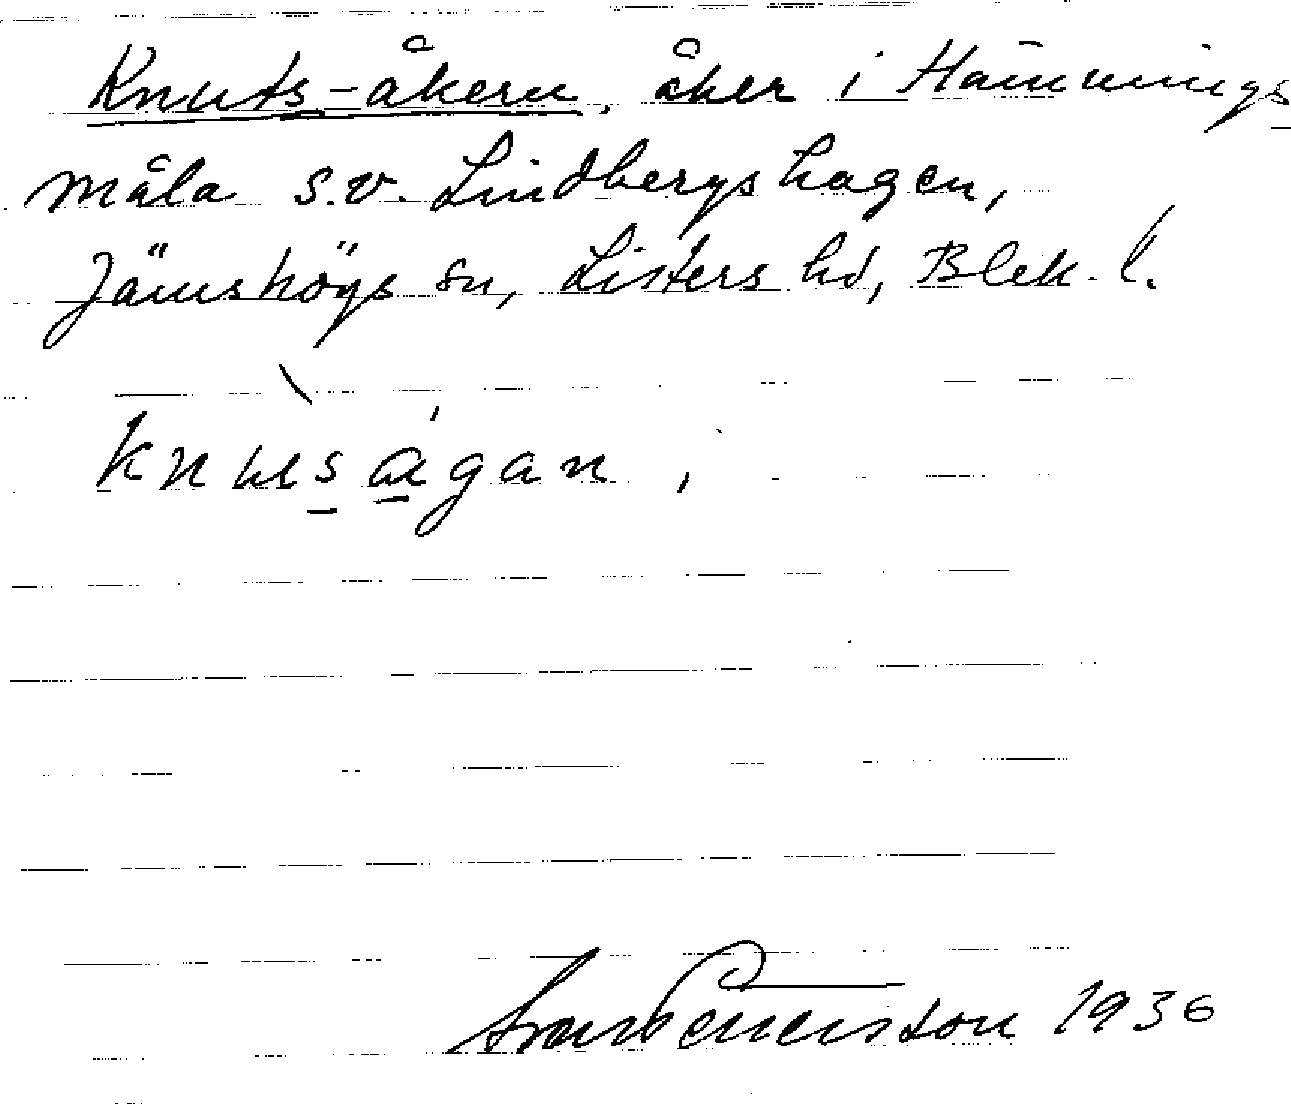 Knuts-åkern, åker i Hämmings
måla s.v. Lindbergshagen,
Jämshögs sn, Listers hd, Blek. l.
knu̇sågan,
Ivar Petersson 1936